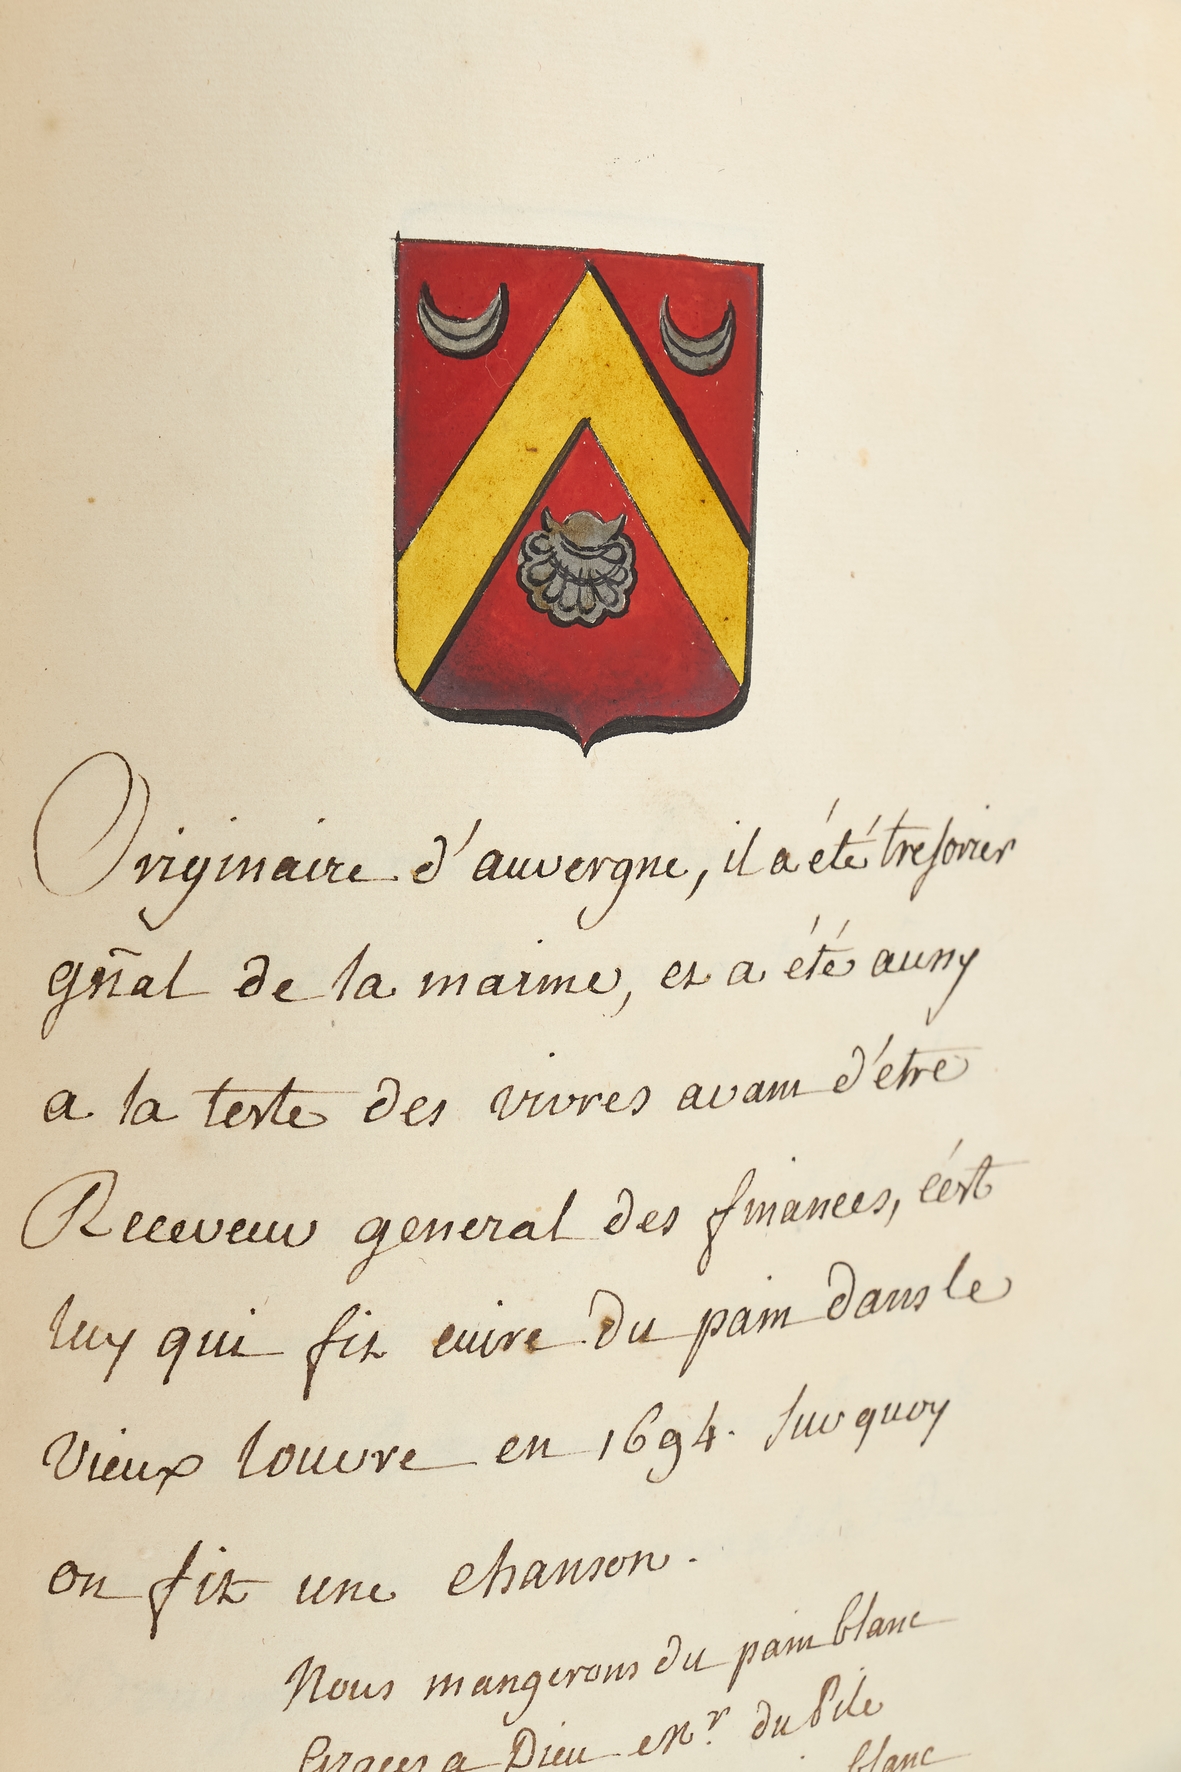 Originaire d'auvergne, il a été tresorier
gñal de la marine, et a été aussy
a la teste des vivres avant d'étre
Receveur general des finances, c'est
luy qui fit cuire du pain dans le
Vieux louvre en 1694. sur quoy
on fit une chanson.
Nous mangerons du pain blanc
Graces a Dieu et Mr. du Pile
blanc